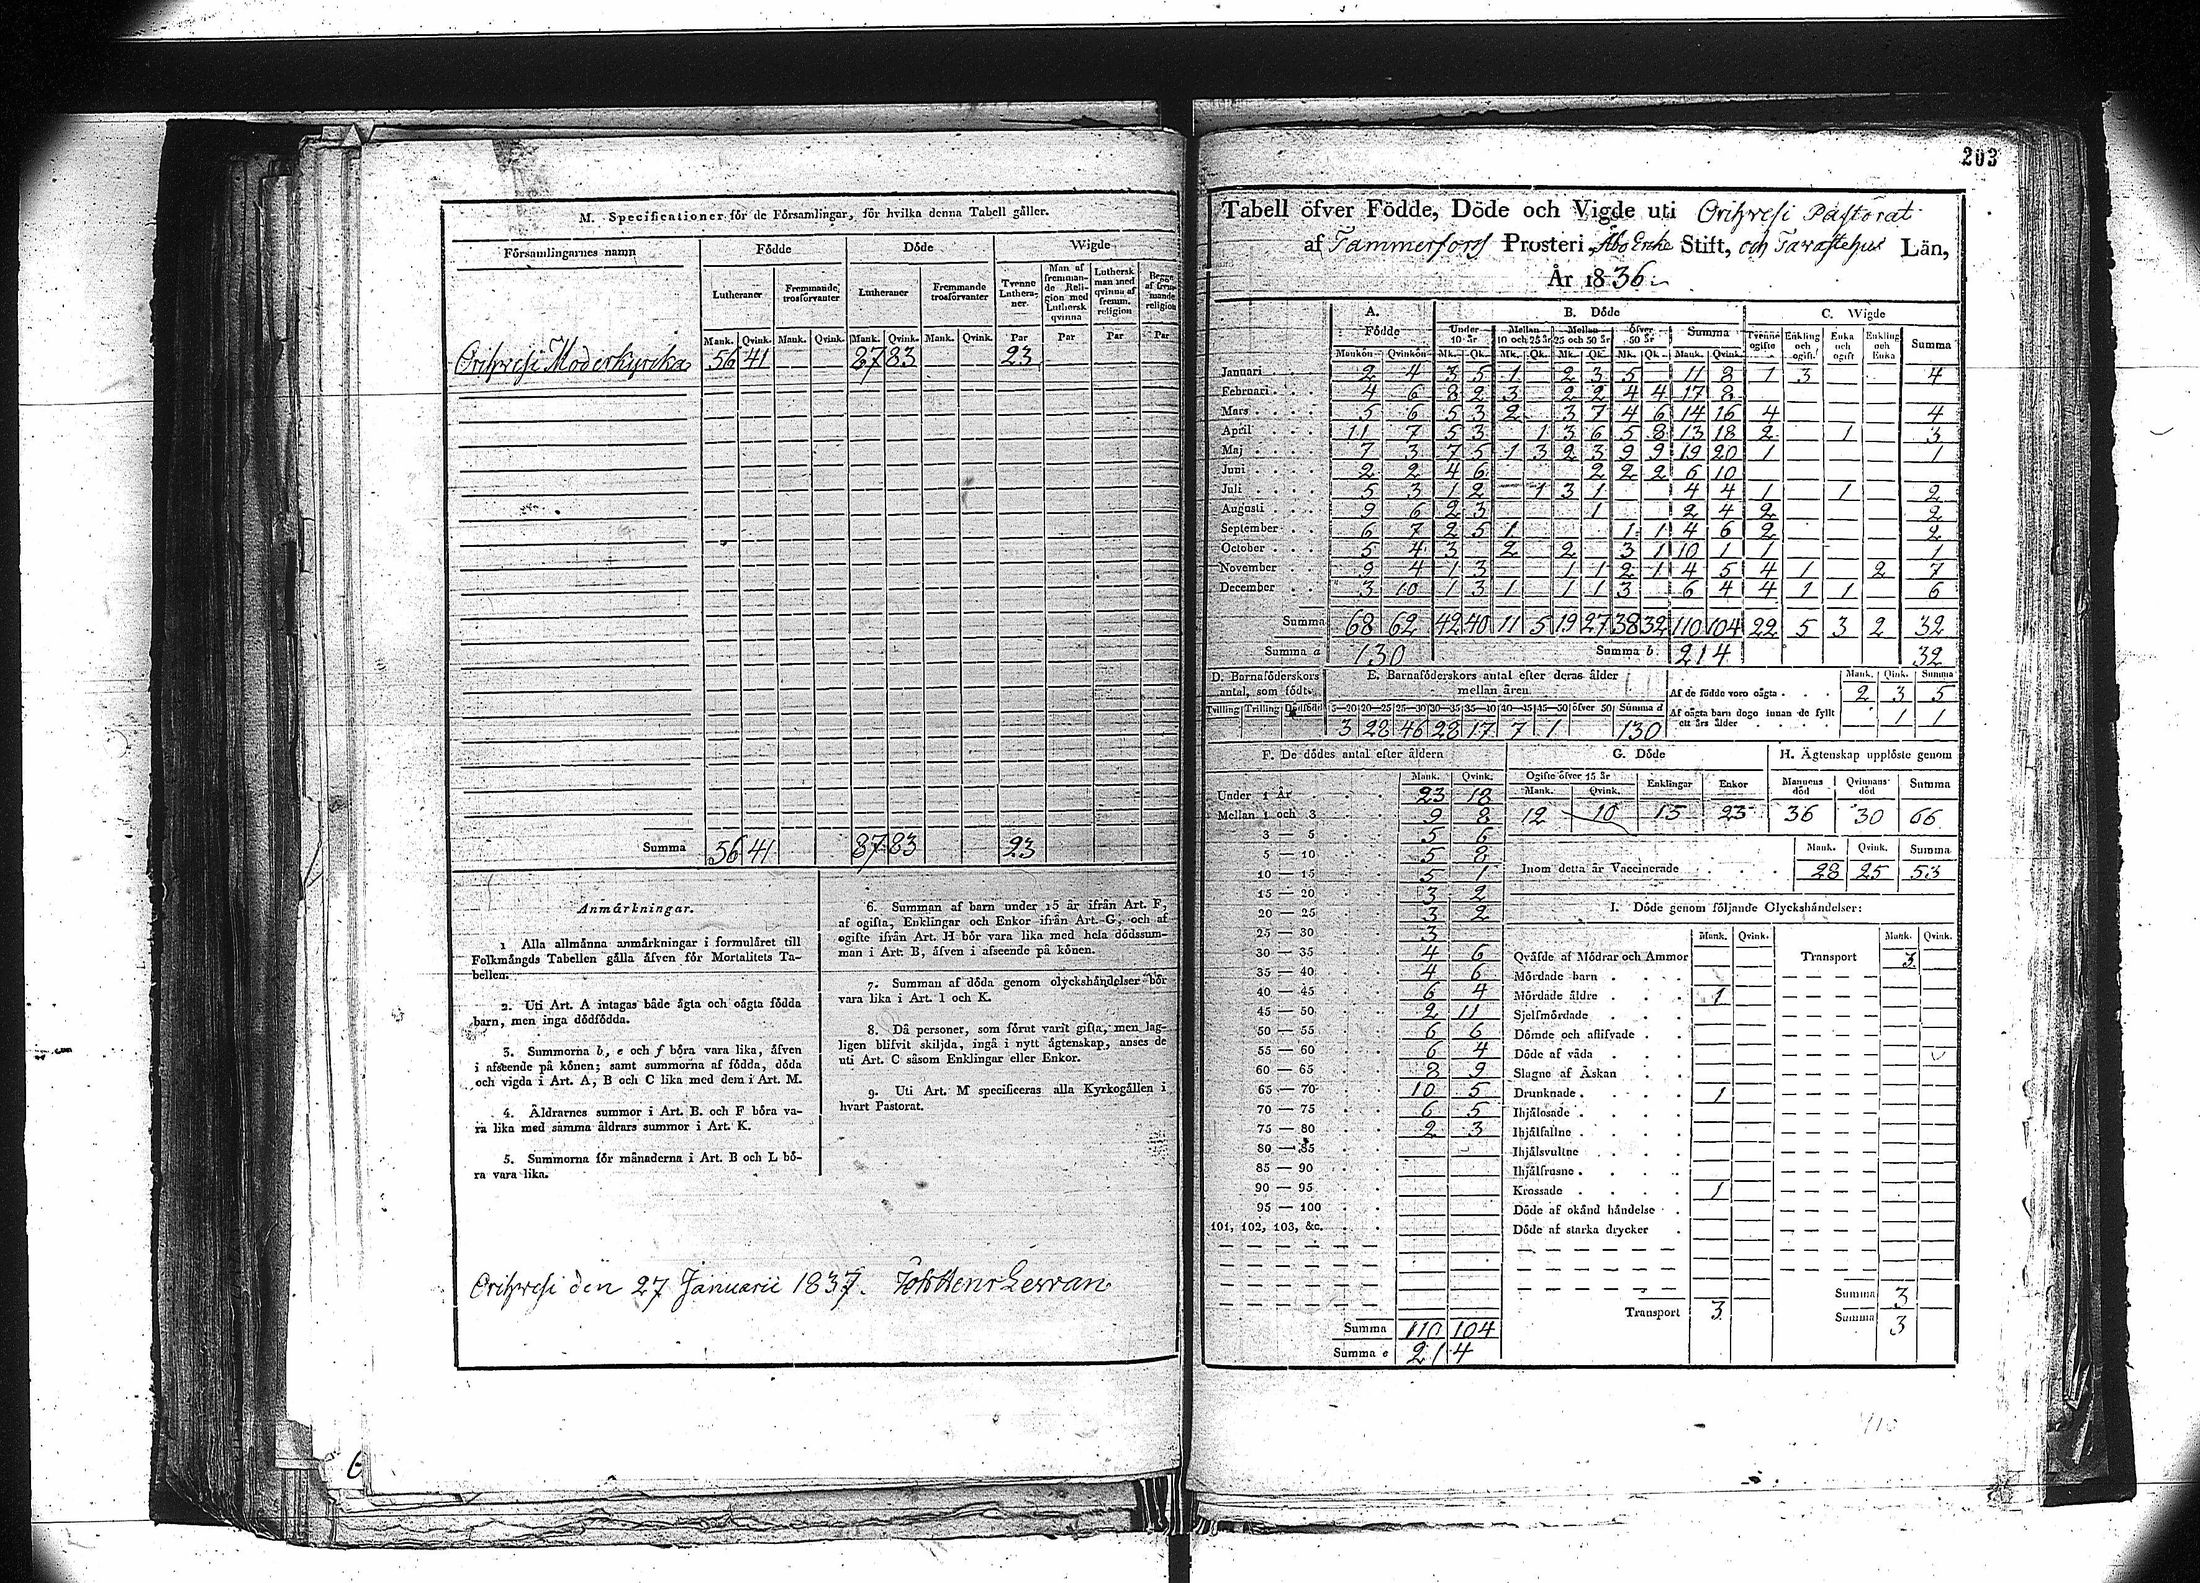 M. Specificationer för de Församlingar, för hvilka denna Tabell gäller.
Församlingarnes namn | Födde | Döde | Wigde
Lutheraner | Fremmande trosförvanter | Lutheraner | Fremmande trosförvanter | Tvenne Lutheraner. | Man af fremmande Religion med Luthersk qvinna | Luthersk man med qvinna af fremm. religion | Begge af fremmande religion
Mank. Qvink. Mank. Qvink. Mank. Qvink. Mank. Qvink. Par Par Par Par
Orihvesi Moderkyrcka 56 41 87 83 23
Summa 56 41 87 83 23
Anmärkningar.
1 Alla allmänna anmärkningar i formuläret till
Folkmängds Tabellen gälla äfven för Mortalitets Ta-
bellen.
2. Uti Art. A intagas både ägta och oägta födda
barn, men inga dödfödda.
3. Summorna b, e och f böra vara lika, äfven
i afseende på könen; samt summorna af födda, döda
och vigda i Art. A, B och C lika med dem i Art. M.
4. Åldrarnes summor i Art. B. och F böra va-
ra lika med samma åldrars summor i Art. K.
5. Summorna för månaderna i Art. B och L bö-
ra vara lika.
6. Summan af barn under 15 år ifrån Art. F,
af ogifta, Enklingar och Enkor ifrån Art. G, och af
ogifte ifrån Art. H bör vara lika med hela dödssum-
man i Art. B, äfven i afseende på könen.
7. Summan af döda genom olyckshändelser bör
vara lika i Art. I och K.
8. Då personer, som förut varit gifta, men lag-
ligen blifvit skiljda, ingå i nytt ägtenskap, anses de
uti Art. C såsom Enklingar eller Enkor.
9. Uti Art. M specificeras alla Kyrkogällen i
hvart Pastorat.
Orihvesi den 27 Januarii 1837.
203
Tabell öfver Födde, Döde och Vigde uti Orihvesi Pastorat
af Tammerfors Prosteri, Åbo Erke Stift, och Tavastehus Län,
År 1836.
A. Födde | B. Döde | C. Wigde
Under 10 år | Mellan 10 och 25 år | Mellan 25 och 50 år | Öfver 50 år | Summa | Tvenne ogifte | Enkling och ogift | Enka och ogift | Enkling och Enka | Summa
Mankön Qvinkön Mk. Qk. Mk. Qk. Mk. Qk. Mk. Qk. Mank. Qvink.
Januari 2 4 3 5 1 2 3 5 11 8 1 3 4
Februari 4 6 8 2 3 2 2 4 4 17 8
Mars 5 6 5 3 2 3 7 4 6 14 16 4 4
April 11 7 5 3 1 3 6 5 8 13 18 2 1 3
Maj 7 3 7 5 1 3 2 3 9 9 19 20 1 1
Juni 2 2 4 6 2 2 2 6 10
Juli 5 3 1 2 1 3 1 4 4 1 1 2
Augusti 9 6 2 3 1 2 4 2 2
September 6 7 2 5 1 1 1 4 6 2 2
October 5 4 3 2 2 3 1 10 1 1 1
November 9 4 1 3 1 1 2 1 4 5 4 1 2 7
December 3 10 1 3 1 1 1 3 6 4 4 1 1 6
Summa 68 62 42 40 11 5 19 27 38 32 110 104 22 5 3 2 32
Summa a 130 Summa b. 214 32
D. Barnaföderskors antal, som födt.
Tvilling Trilling Dödfödt
E. Barnaföderskors antal efter deras ålder
mellan åren
15—20 20—25 25—30 30—35 35—40 40—45 45—50 öfver 50 Summa d
3 28 46 28 17 7 1 130
Mank. Qink. Summa
Af de födde voro oägta 2 3 5
Af oägta barn dogo innan de fyllt
ett års ålder 1 1
F. De dödes antal efter åldern
Mank. Qvink.
Under 1 År 23 18
Mellan 1 och 3 9 8
3 — 5 5 6
5 — 10 5 8
10 — 15 5 1
15 — 20 3 2
20 — 25 3 2
25 — 30 3
30 — 35 4 6
35 — 40 4 6
40 — 45 6 4
45 — 50 2 11
50 — 55 6 6
55 — 60 6 4
60 — 65 8 9
65 — 70 10 5
70 — 75 6 5
75 — 80 2 3
80 — 85
85 — 90
90 — 95
95 — 100
101, 102, 103, &c.
Summa 110 104
Summa e 214
G. Döde
Ogifte öfver 15 år | Enklingar | Enkor
Mank. Qvink.
12 10 15 23
H. Ägtenskap upplöste genom
Mannens död | Qvinnans död | Summa
36 30 66
Mank. Qvink. Summa
Inom detta år Vaccinerade 28 25 53
I. Döde genom följande Olyckshändelser:
Mank. Qvink. Mank. Qvink.
Qväfde af Mödrar och Ammor Transport 3
Mördade barn
Mördade äldre 1
Sjelfmördade
Dömde och aflifvade
Döde af våda
Slagne af Åskan
Drunknade 1
Ihjälosade
Ihjälfallne
Ihjälsvultne
Ihjälfrusne
Krossade 1
Döde af okänd händelse
Döde af starka drycker
Summa 3
Transport 3 Summa 3